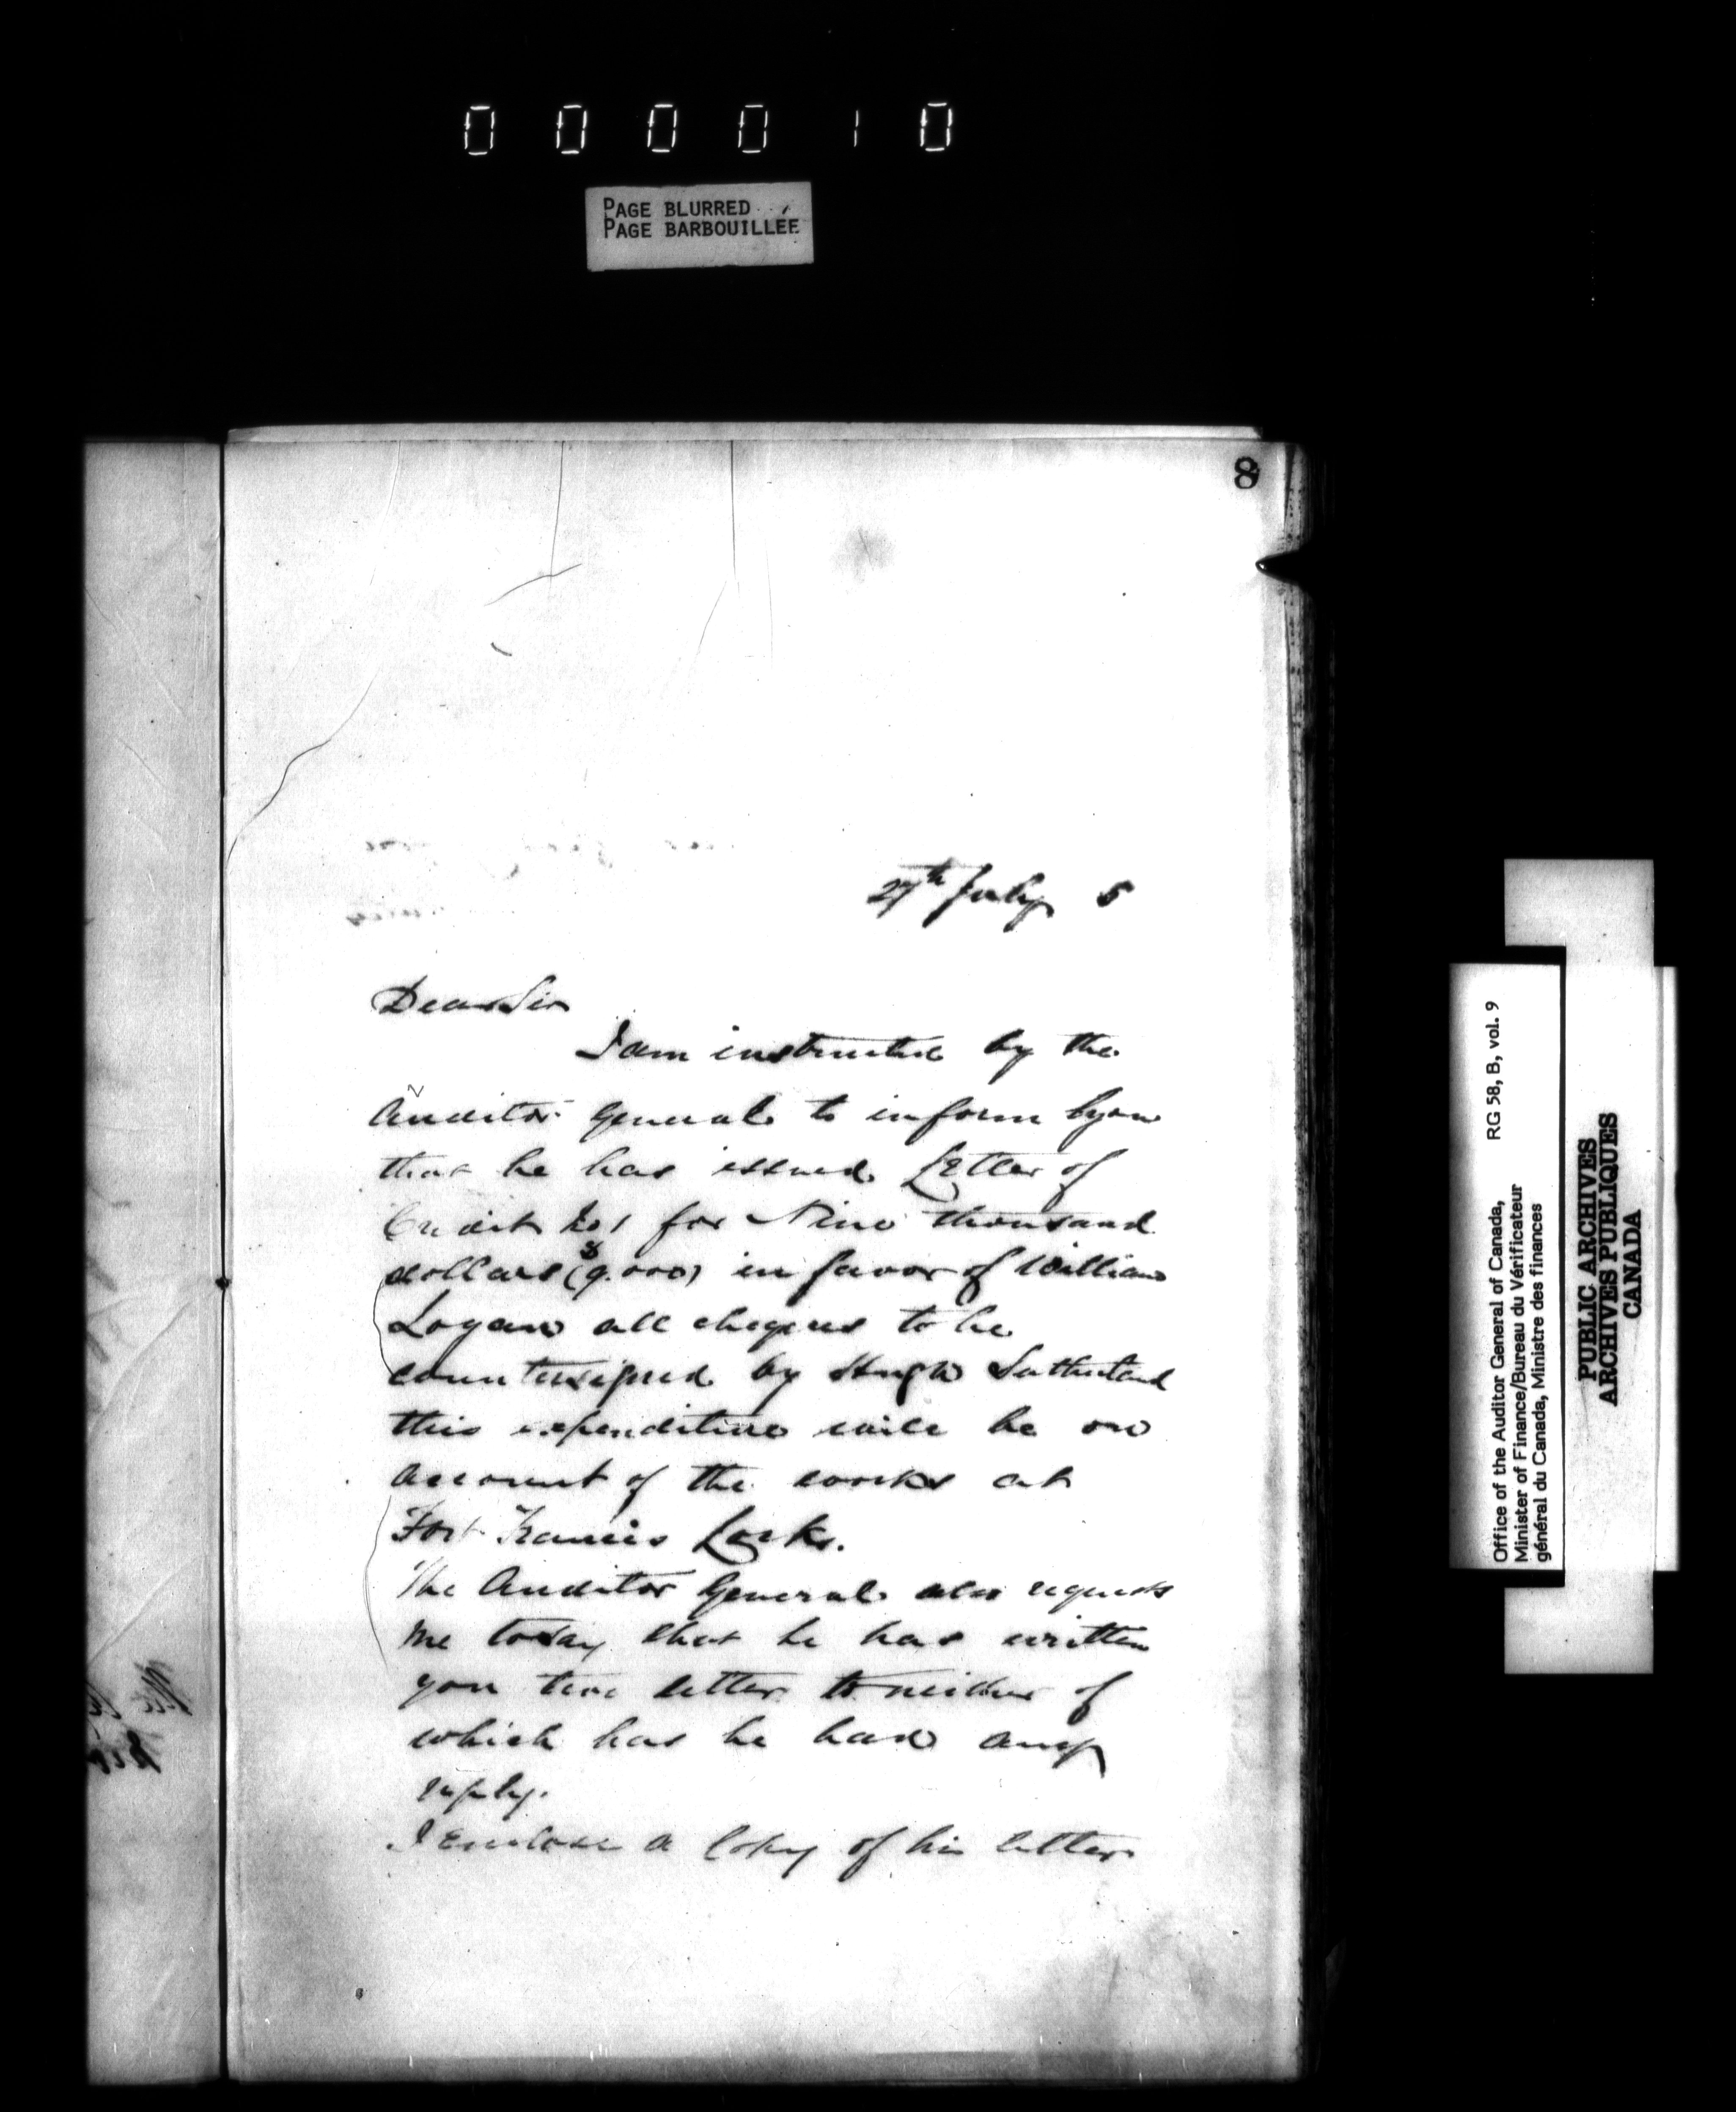 000010
PAGE BLURRED
PAGE BARBOUILLÉE
8
27th July 5
Dear Sir
I am instructed by the
Auditor General to inform you
that he has issued Letter of
Credit No 1 for Nine thousand
dollars ($9.000) in favor of William
Logan all cheques to be
countersigned by Hugh Sutherland
this expenditure will be on
account of the works at
Fort Francis Locks.
The Auditor General also requests
me to say that he has written
you two letters to neither of
which has he had any
reply.
I enclose a Copy of his letter
Office of the Auditor General of Canada, RG 58, B, vol. 9
Minister of Finance/Bureau du Vérificateur
général du Canada, Ministre des finances
PUBLIC ARCHIVES
ARCHIVES PUBLIQUES
CANADA